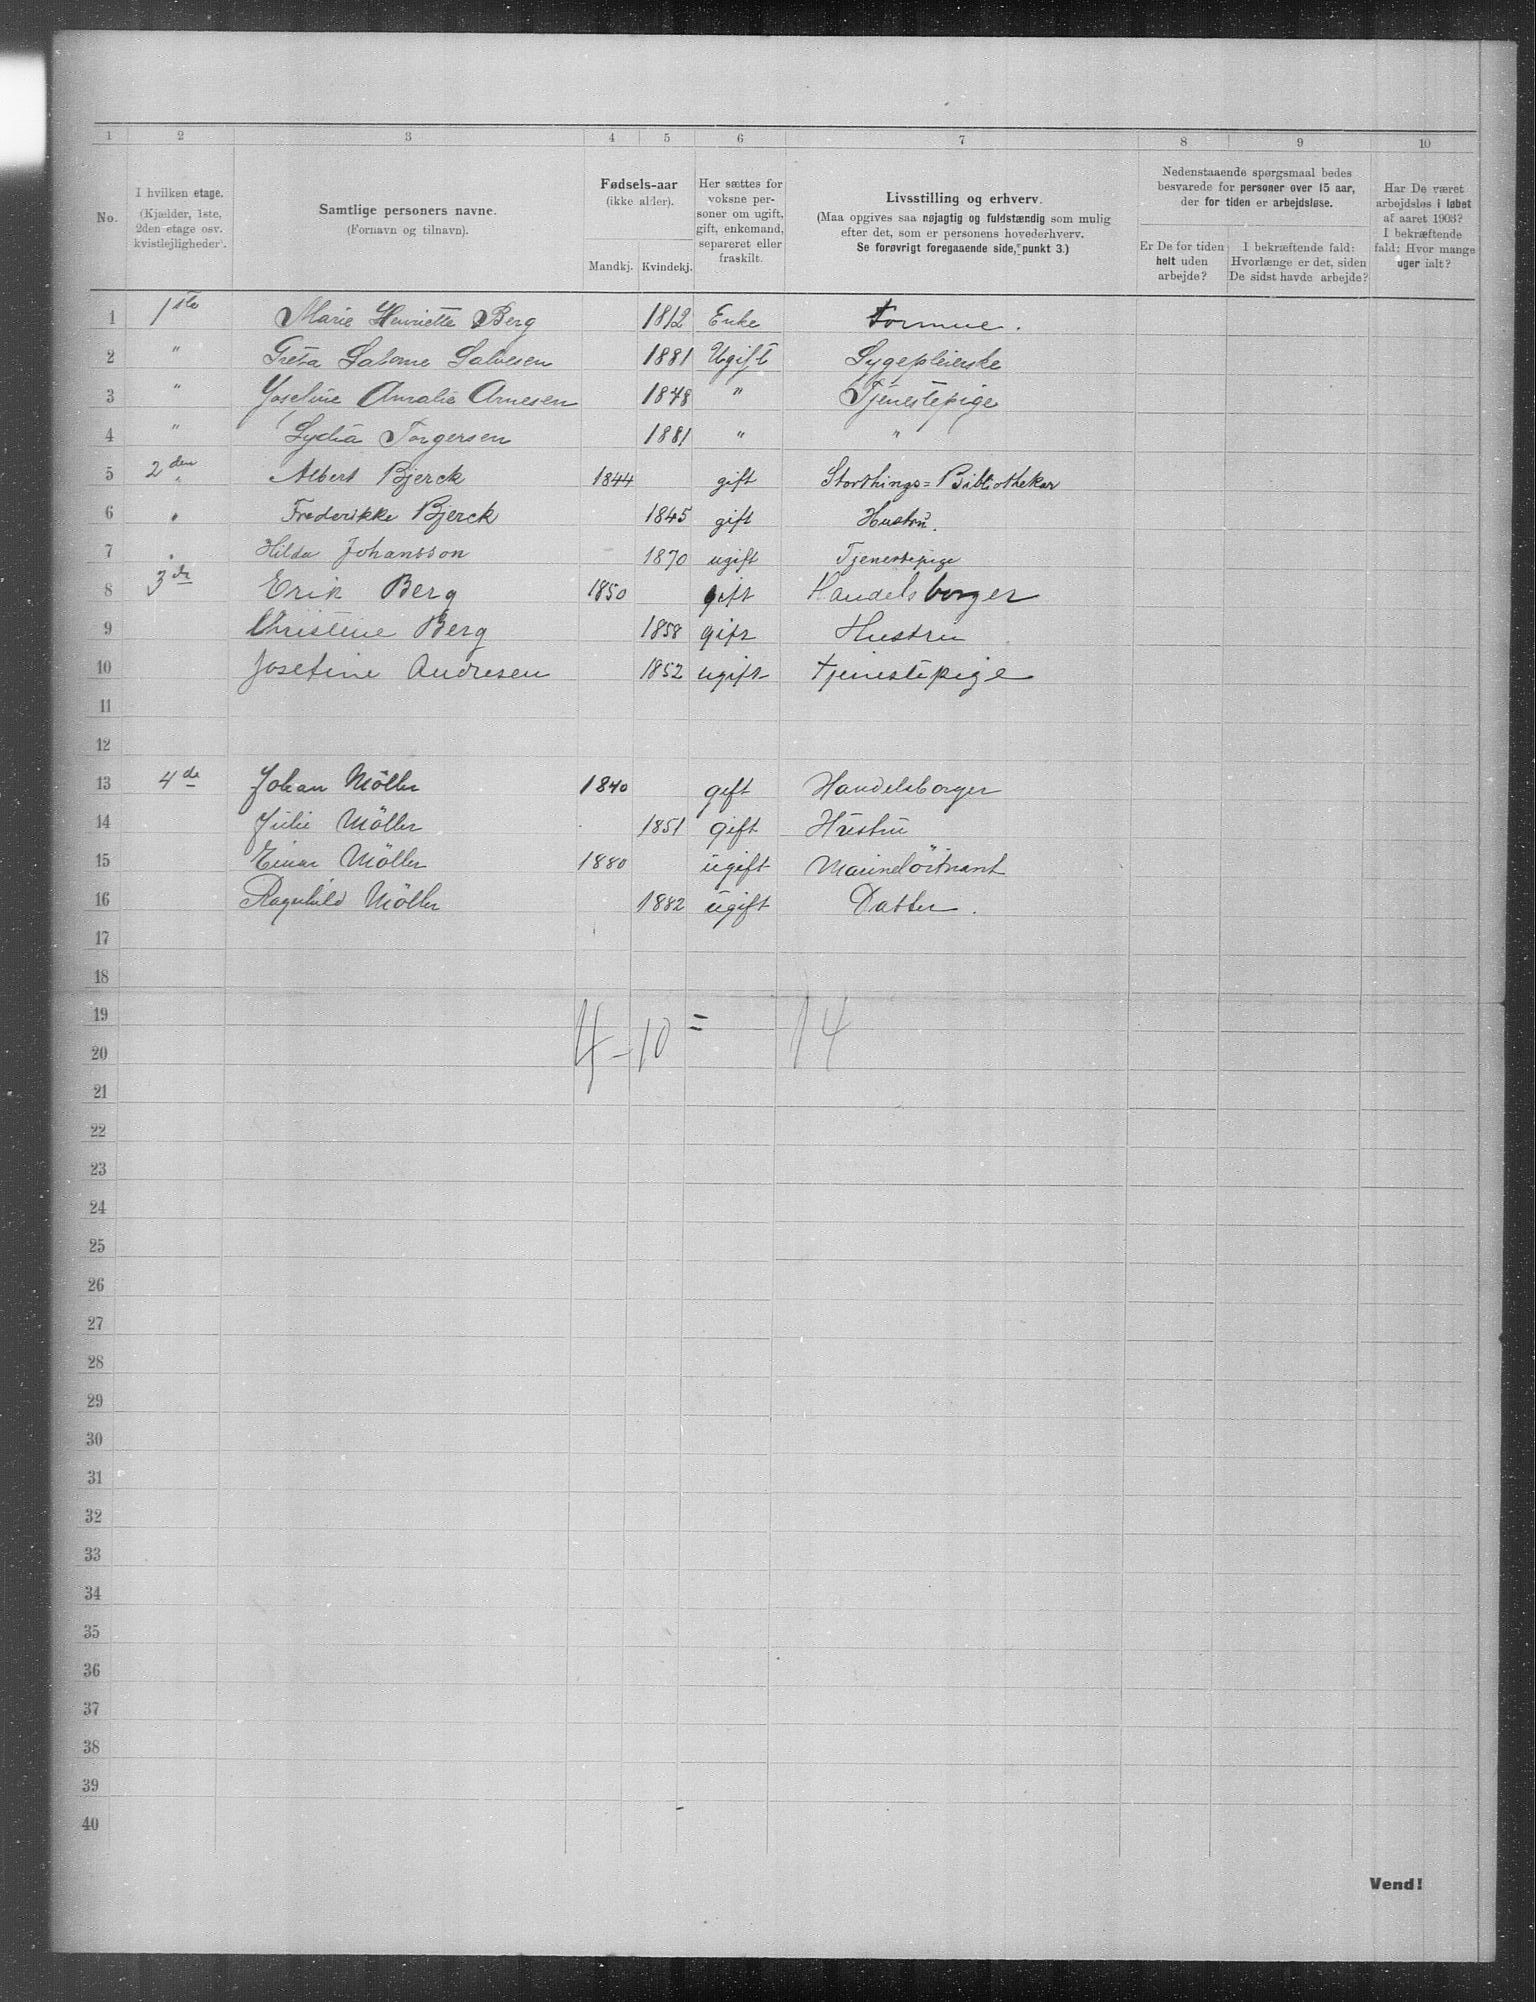 1 2 3 4 5 6 7 8 9 10
No.
I hvilken etage.
(Kjælder, 1ste,
2den etage osv.
kvistlejligheder).
Samtlige personers navne.
(Fornavn og tilnavn).
Fødsels-aar
(ikke alder).
Mandkj. Kvindekj.
Her sættes for
voksne per-
soner om ugift,
gift, enkemand,
separeret eller
fraskilt.
Livsstilling og erhverv.
(Maa opgives saa nøjagtig og fuldstændig som mulig
efter det, som er personens hovederhverv.
Se forøvrigt foregaaende side, punkt 3.)
Nedenstaaende spørgsmaal bedes
besvarede for personer over 15 aar,
der for tiden er arbejdsløse.
Er De for tiden
helt uden
arbejde?
I bekræftende fald:
Hvorlænge er det, siden
De sidst havde arbejde?
Har De været
arbejdsløs i løbet
af aaret 1903?
I bekræftende
fald: Hvor mange
uger ialt?
1 1ste Marie Henriette Berg 1812 Enke Formue.
2 " Greta Salome Salvesen 1881 Ugift Sygepleierske
3 " Joseline Amalie Arnesen 1848 " Tjenestepige
4 " Lydia Torgersen 1881 " "
5 2den " Albert Bjerck 1844 gift Storthings=Bibliothekar
6 " Frederikke Bjerck 1845 gift Hustru.
7 " Hilda Johansson 1870 ugift Tjenestepige
8 3de Erik Berg 1850 gift Handelsborger
9 Christine Berg 1858 gift Hustru
10 Josefine Andresen 1852 ugift tjenestepige
11
12
13 4de Johan Möller 1840 gift Handelsborger
14 Julie Möller 1851 gift Hustru
15 Einar Möller 1880 ugift Marinelöitnant
16 Ragnhild Möller 1882 ugift Datter.
17
18
19
4 - 10 = 14
20
21
22
23
24
25
26
27
28
29
30
31
32
33
34
35
36
37
38
39
40
Vend!